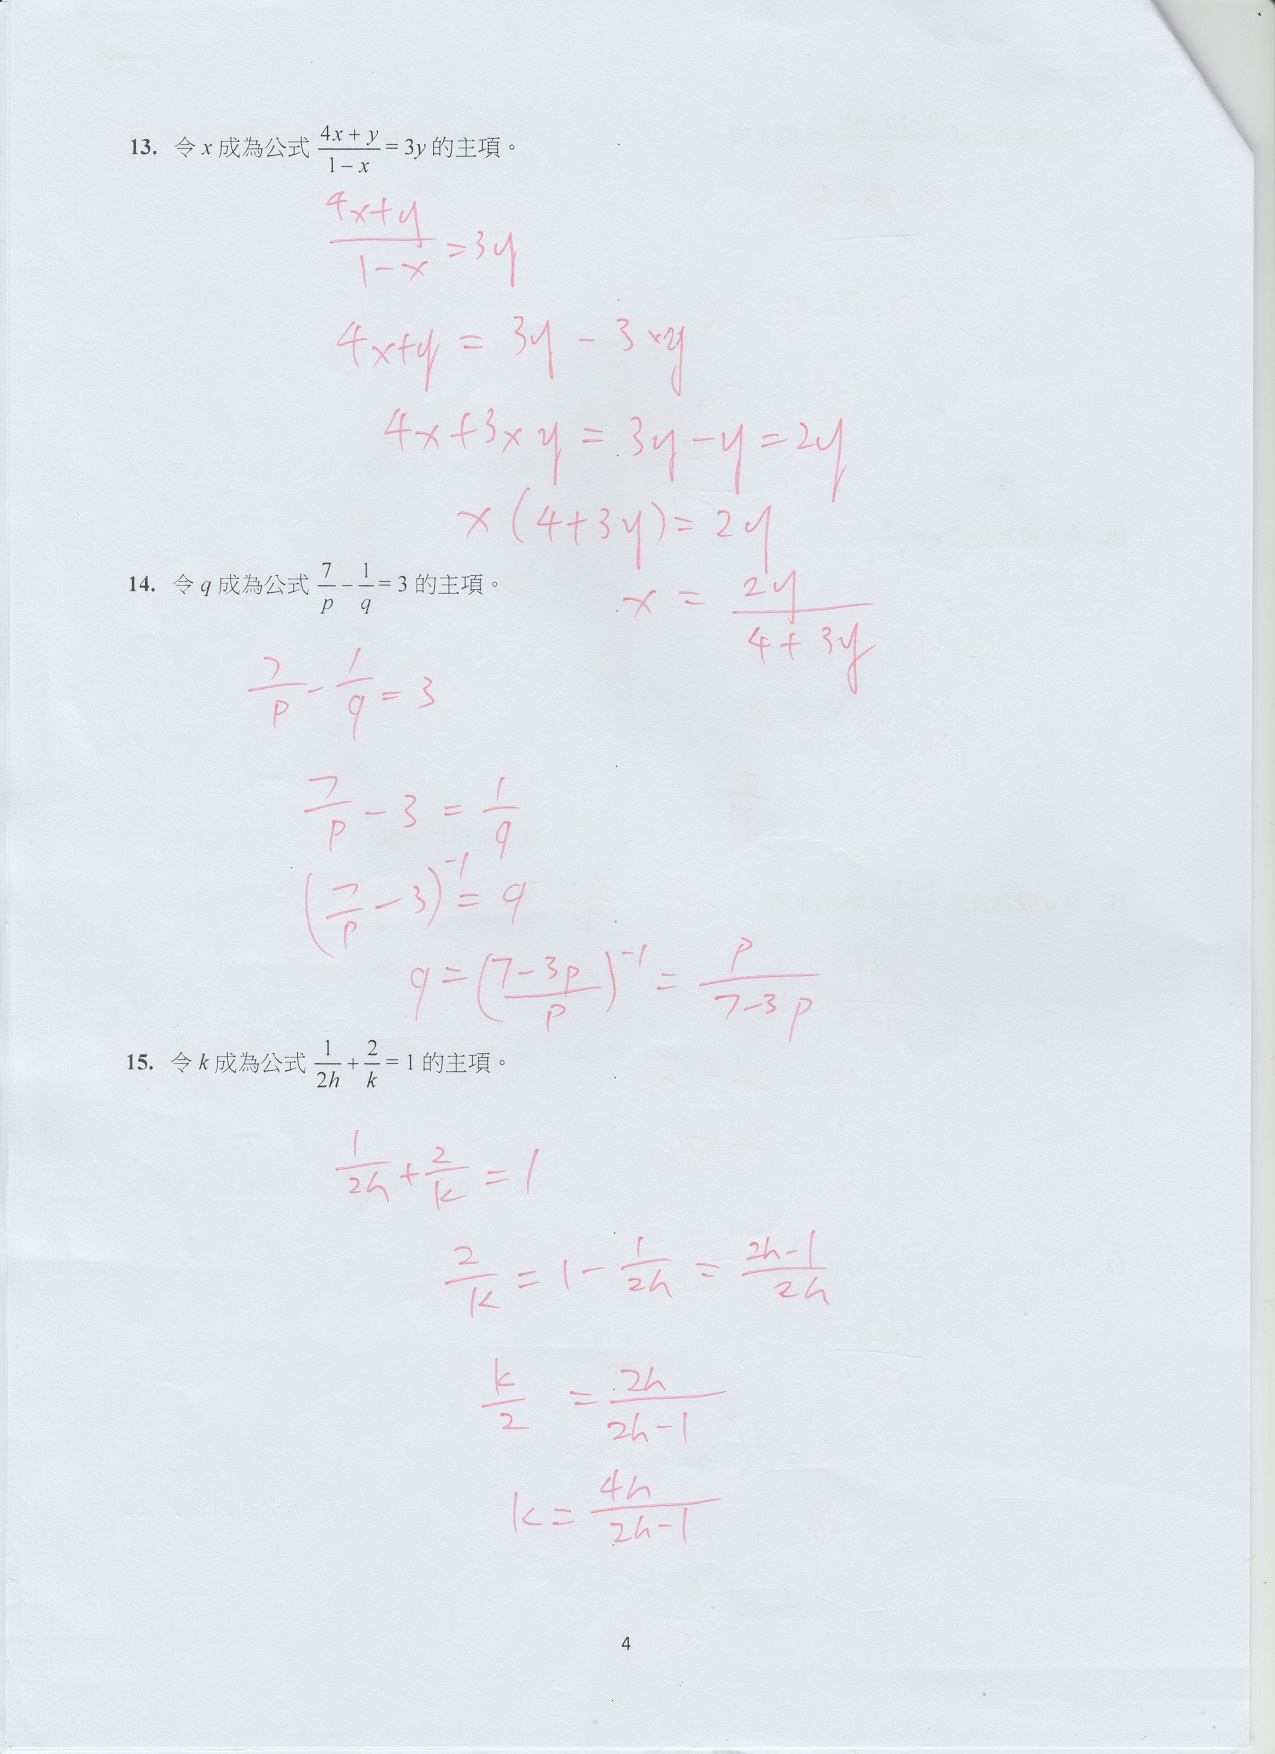 13. 令 x 成為公式 (4x + y)/(1 − x) = 3y 的主項。
(4x+y)/(1−x) = 3y
4x+y = 3y − 3xy
4x+3xy = 3y−y = 2y
x(4+3y) = 2y
x = 2y/(4+3y)
14. 令 q 成為公式 7/p − 1/q = 3 的主項。
7/p − 1/q = 3
7/p − 3 = 1/q
(7/p − 3)^−1 = q
q = ((7−3p)/p)^−1 = p/(7−3p)
15. 令 k 成為公式 1/2h + 2/k = 1 的主項。
1/2h + 2/k = 1
2/k = 1 − 1/2h = (2h−1)/2h
k/2 = 2h/(2h−1)
k = 4h/(2h−1)
4